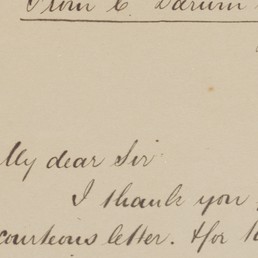 From C. Darwin
My dear Sir
I thank you
courteous letter. & for